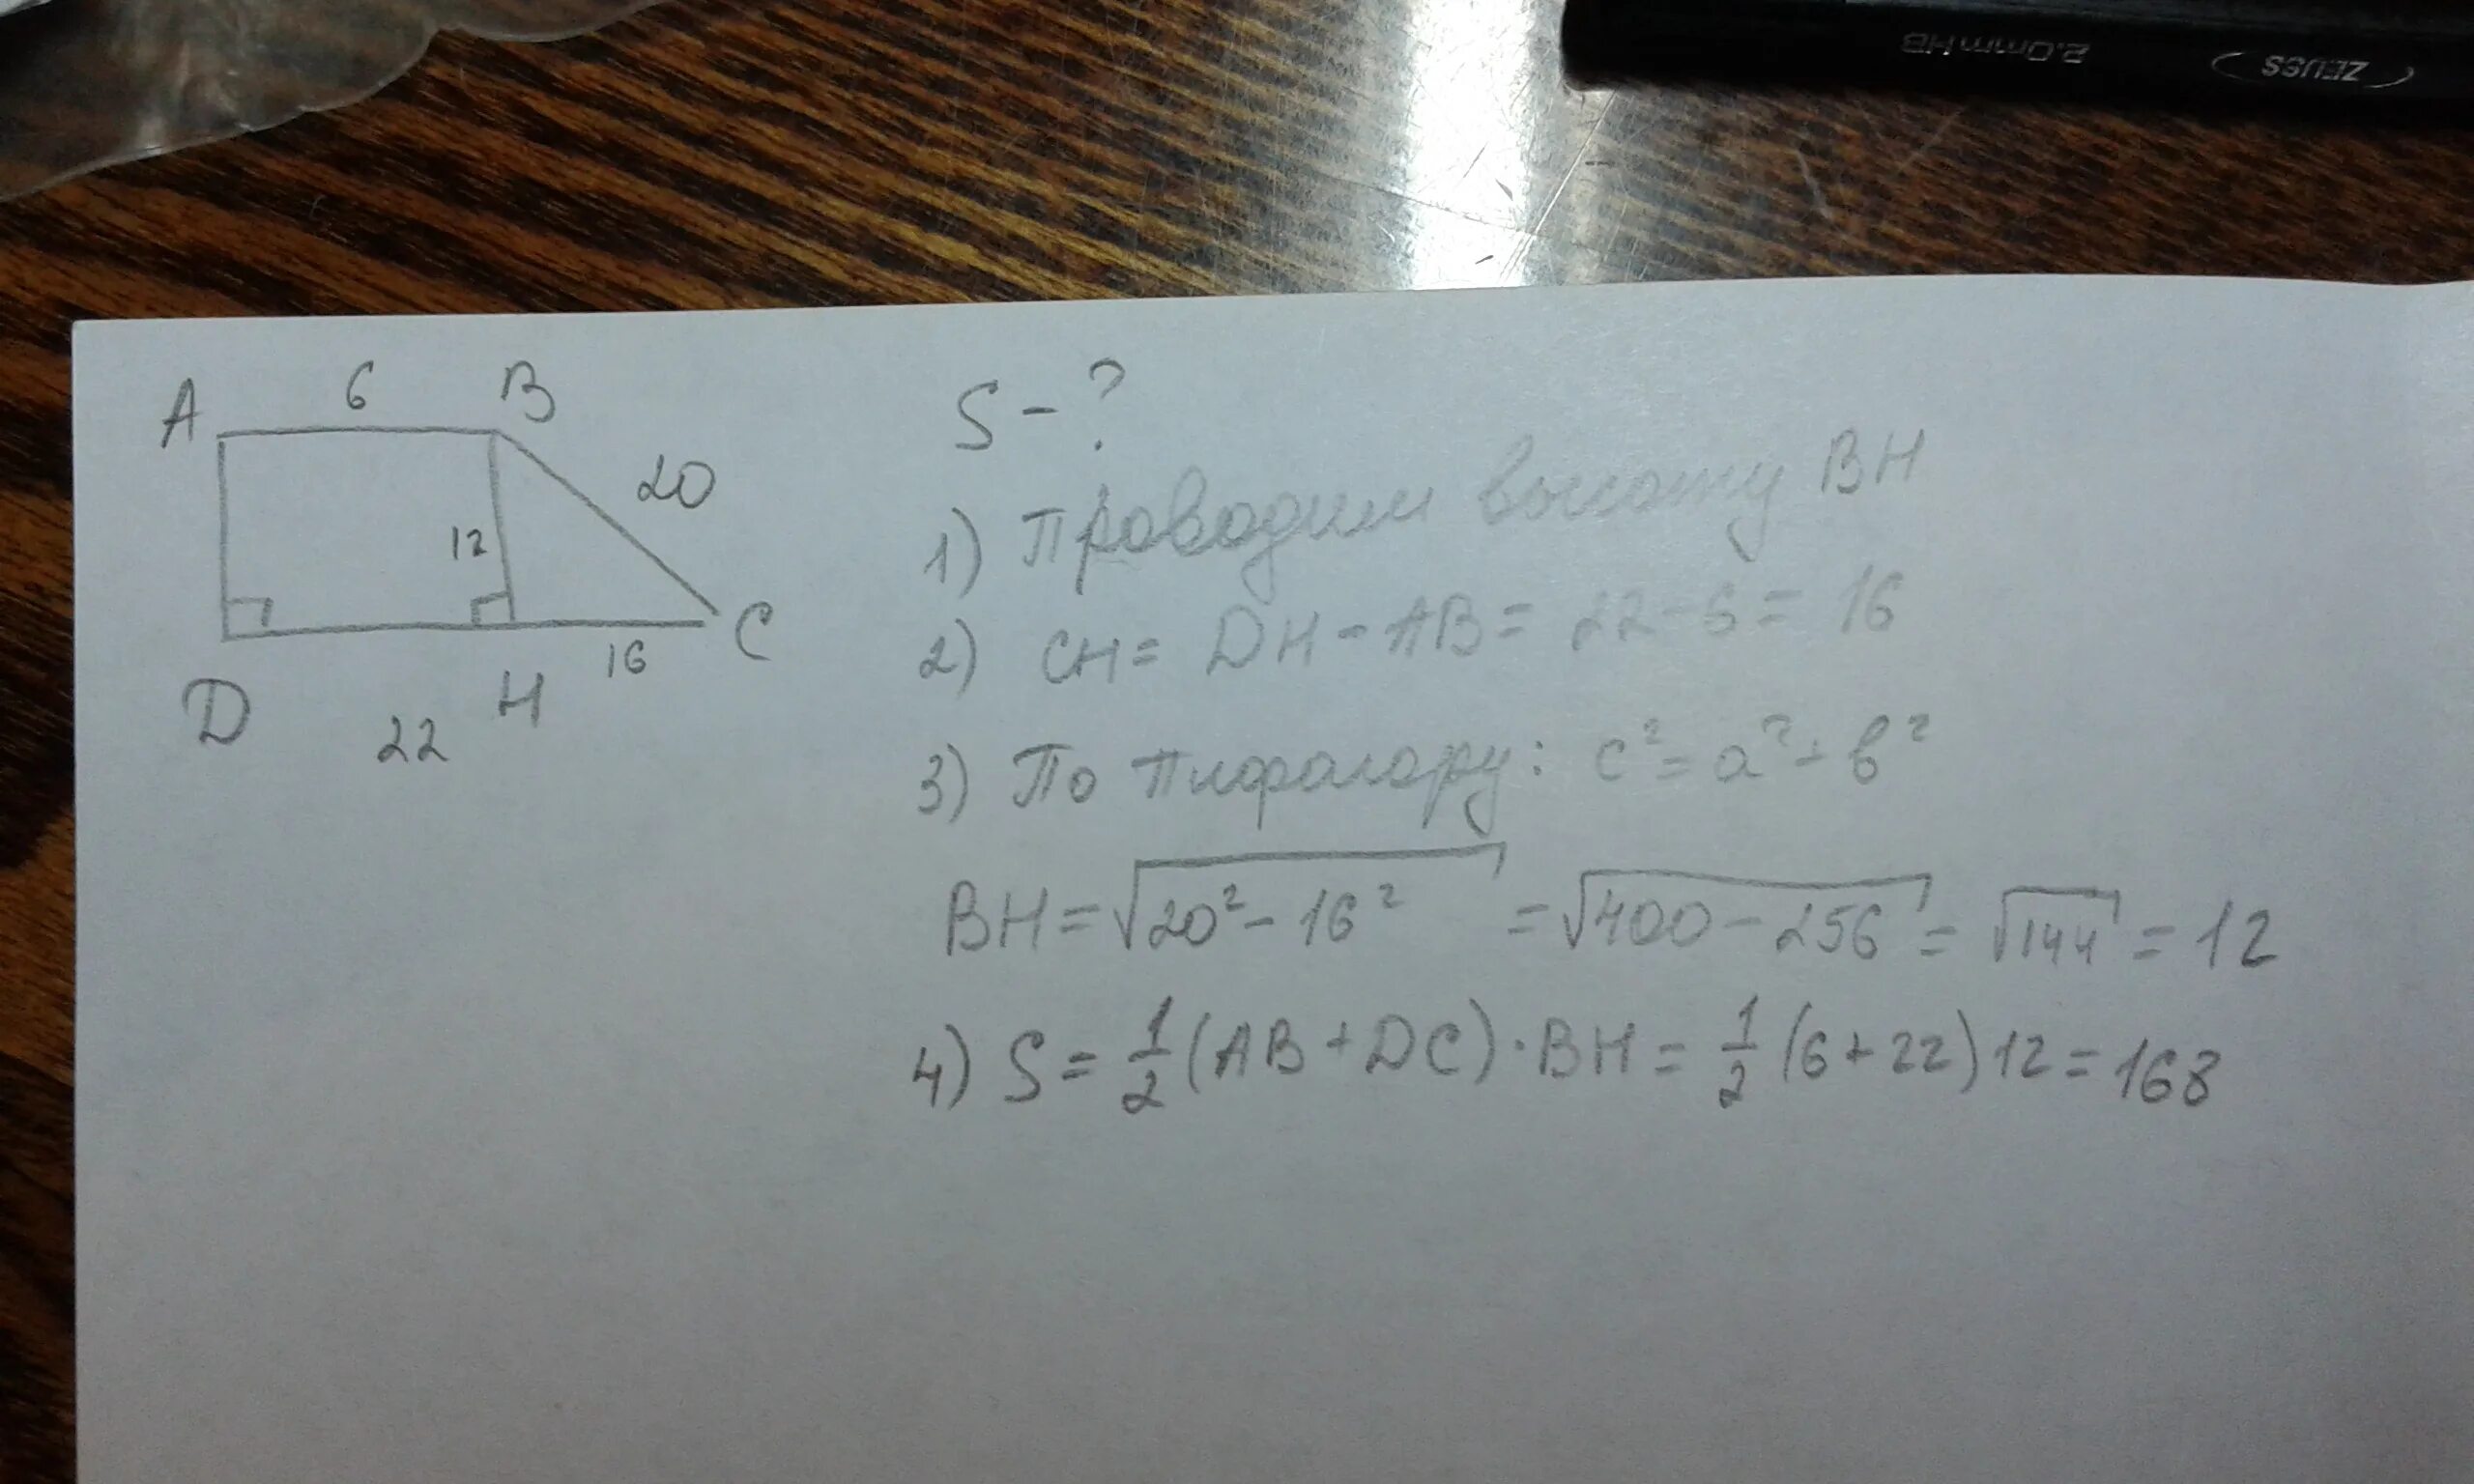 2.0mm HB ZEUSS
A 6 B
20
12
C
16
D H
22
S - ?
1) Проводим высоту BH
2) CH = DH - AB = 22 - 6 = 16
3) По Пифагору: c² = a² + b²
BH = √20² - 16² = √400 - 256 = √144 = 12
4) S = 1/2 (AB + DC) · BH = 1/2 (6 + 22) 12 = 168